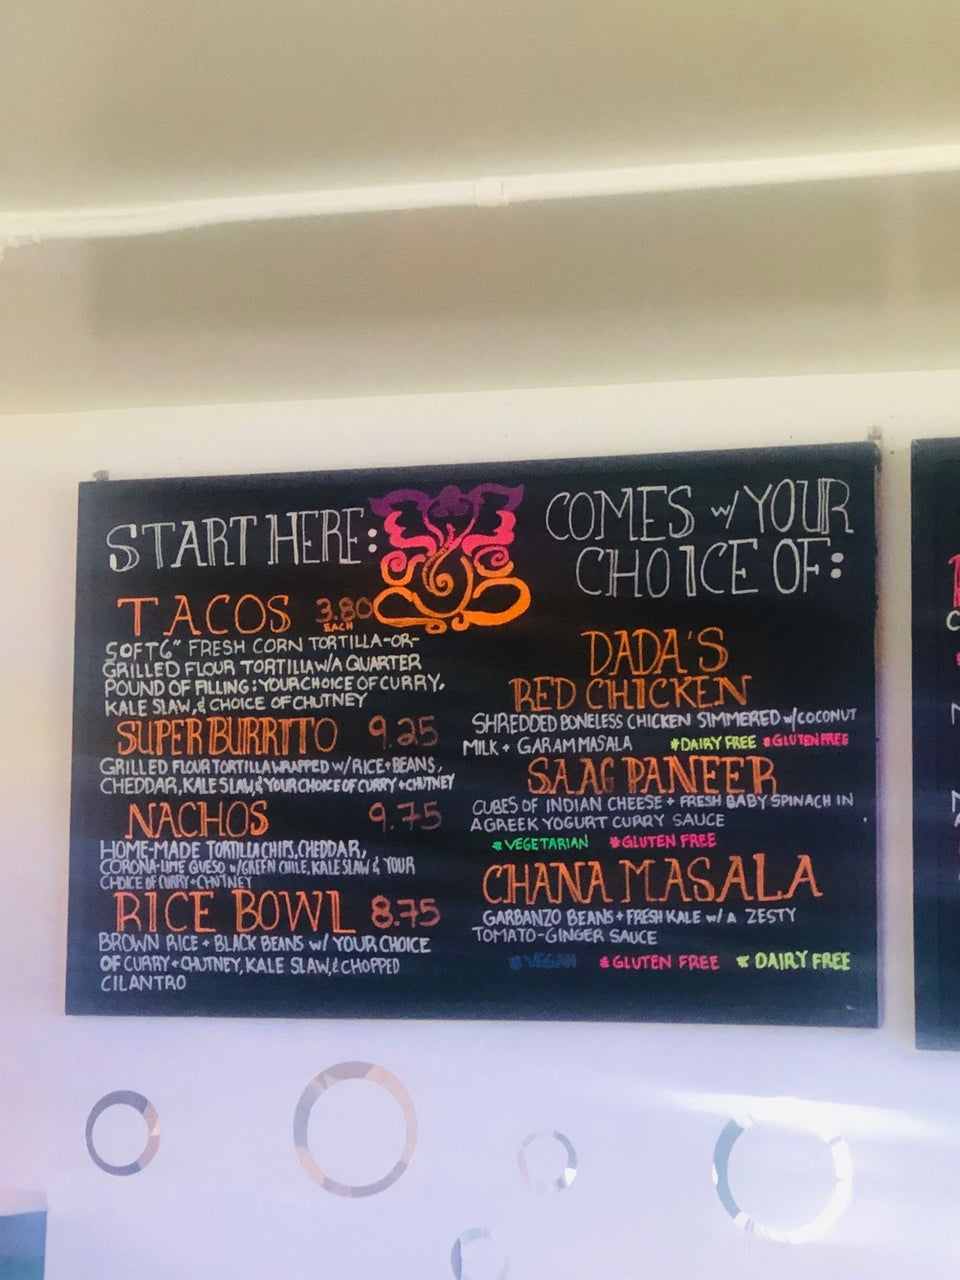 START HERE:
TACOS 3.80
EACH
SOFT 6" FRESH CORN TORTILLA-OR-
GRILLED FLOUR TORTILLA W/A QUARTER
POUND OF FILLING: YOUR CHOICE OF CURRY,
KALE SLAW, & CHOICE OF CHUTNEY
SUPER BURRITO 9.25
GRILLED FLOUR TORTILLA WRAPPED W/ RICE + BEANS,
CHEDDAR, KALE SLAW, & YOUR CHOICE OF CURRY + CHUTNEY
NACHOS 9.75
HOME-MADE TORTILLA CHIPS, CHEDDAR,
CORONA-LIME QUESO W/ GREEN CHILE, KALE SLAW & YOUR
CHOICE OF CURRY + CHUTNEY
RICE BOWL 8.75
BROWN RICE + BLACK BEANS W/ YOUR CHOICE
OF CURRY + CHUTNEY, KALE SLAW, & CHOPPED
CILANTRO
COMES W/ YOUR
CHOICE OF:
DADA'S
RED CHICKEN
SHREDDED BONELESS CHICKEN SIMMERED W/ COCONUT
MILK + GARAM MASALA *DAIRY FREE *GLUTEN FREE
SAAG PANEER
CUBES OF INDIAN CHEESE + FRESH BABY SPINACH IN
A GREEK YOGURT CURRY SAUCE
*VEGETARIAN *GLUTEN FREE
CHANA MASALA
GARBANZO BEANS + FRESH KALE W/ A ZESTY
TOMATO-GINGER SAUCE
*VEGAN *GLUTEN FREE *DAIRY FREE